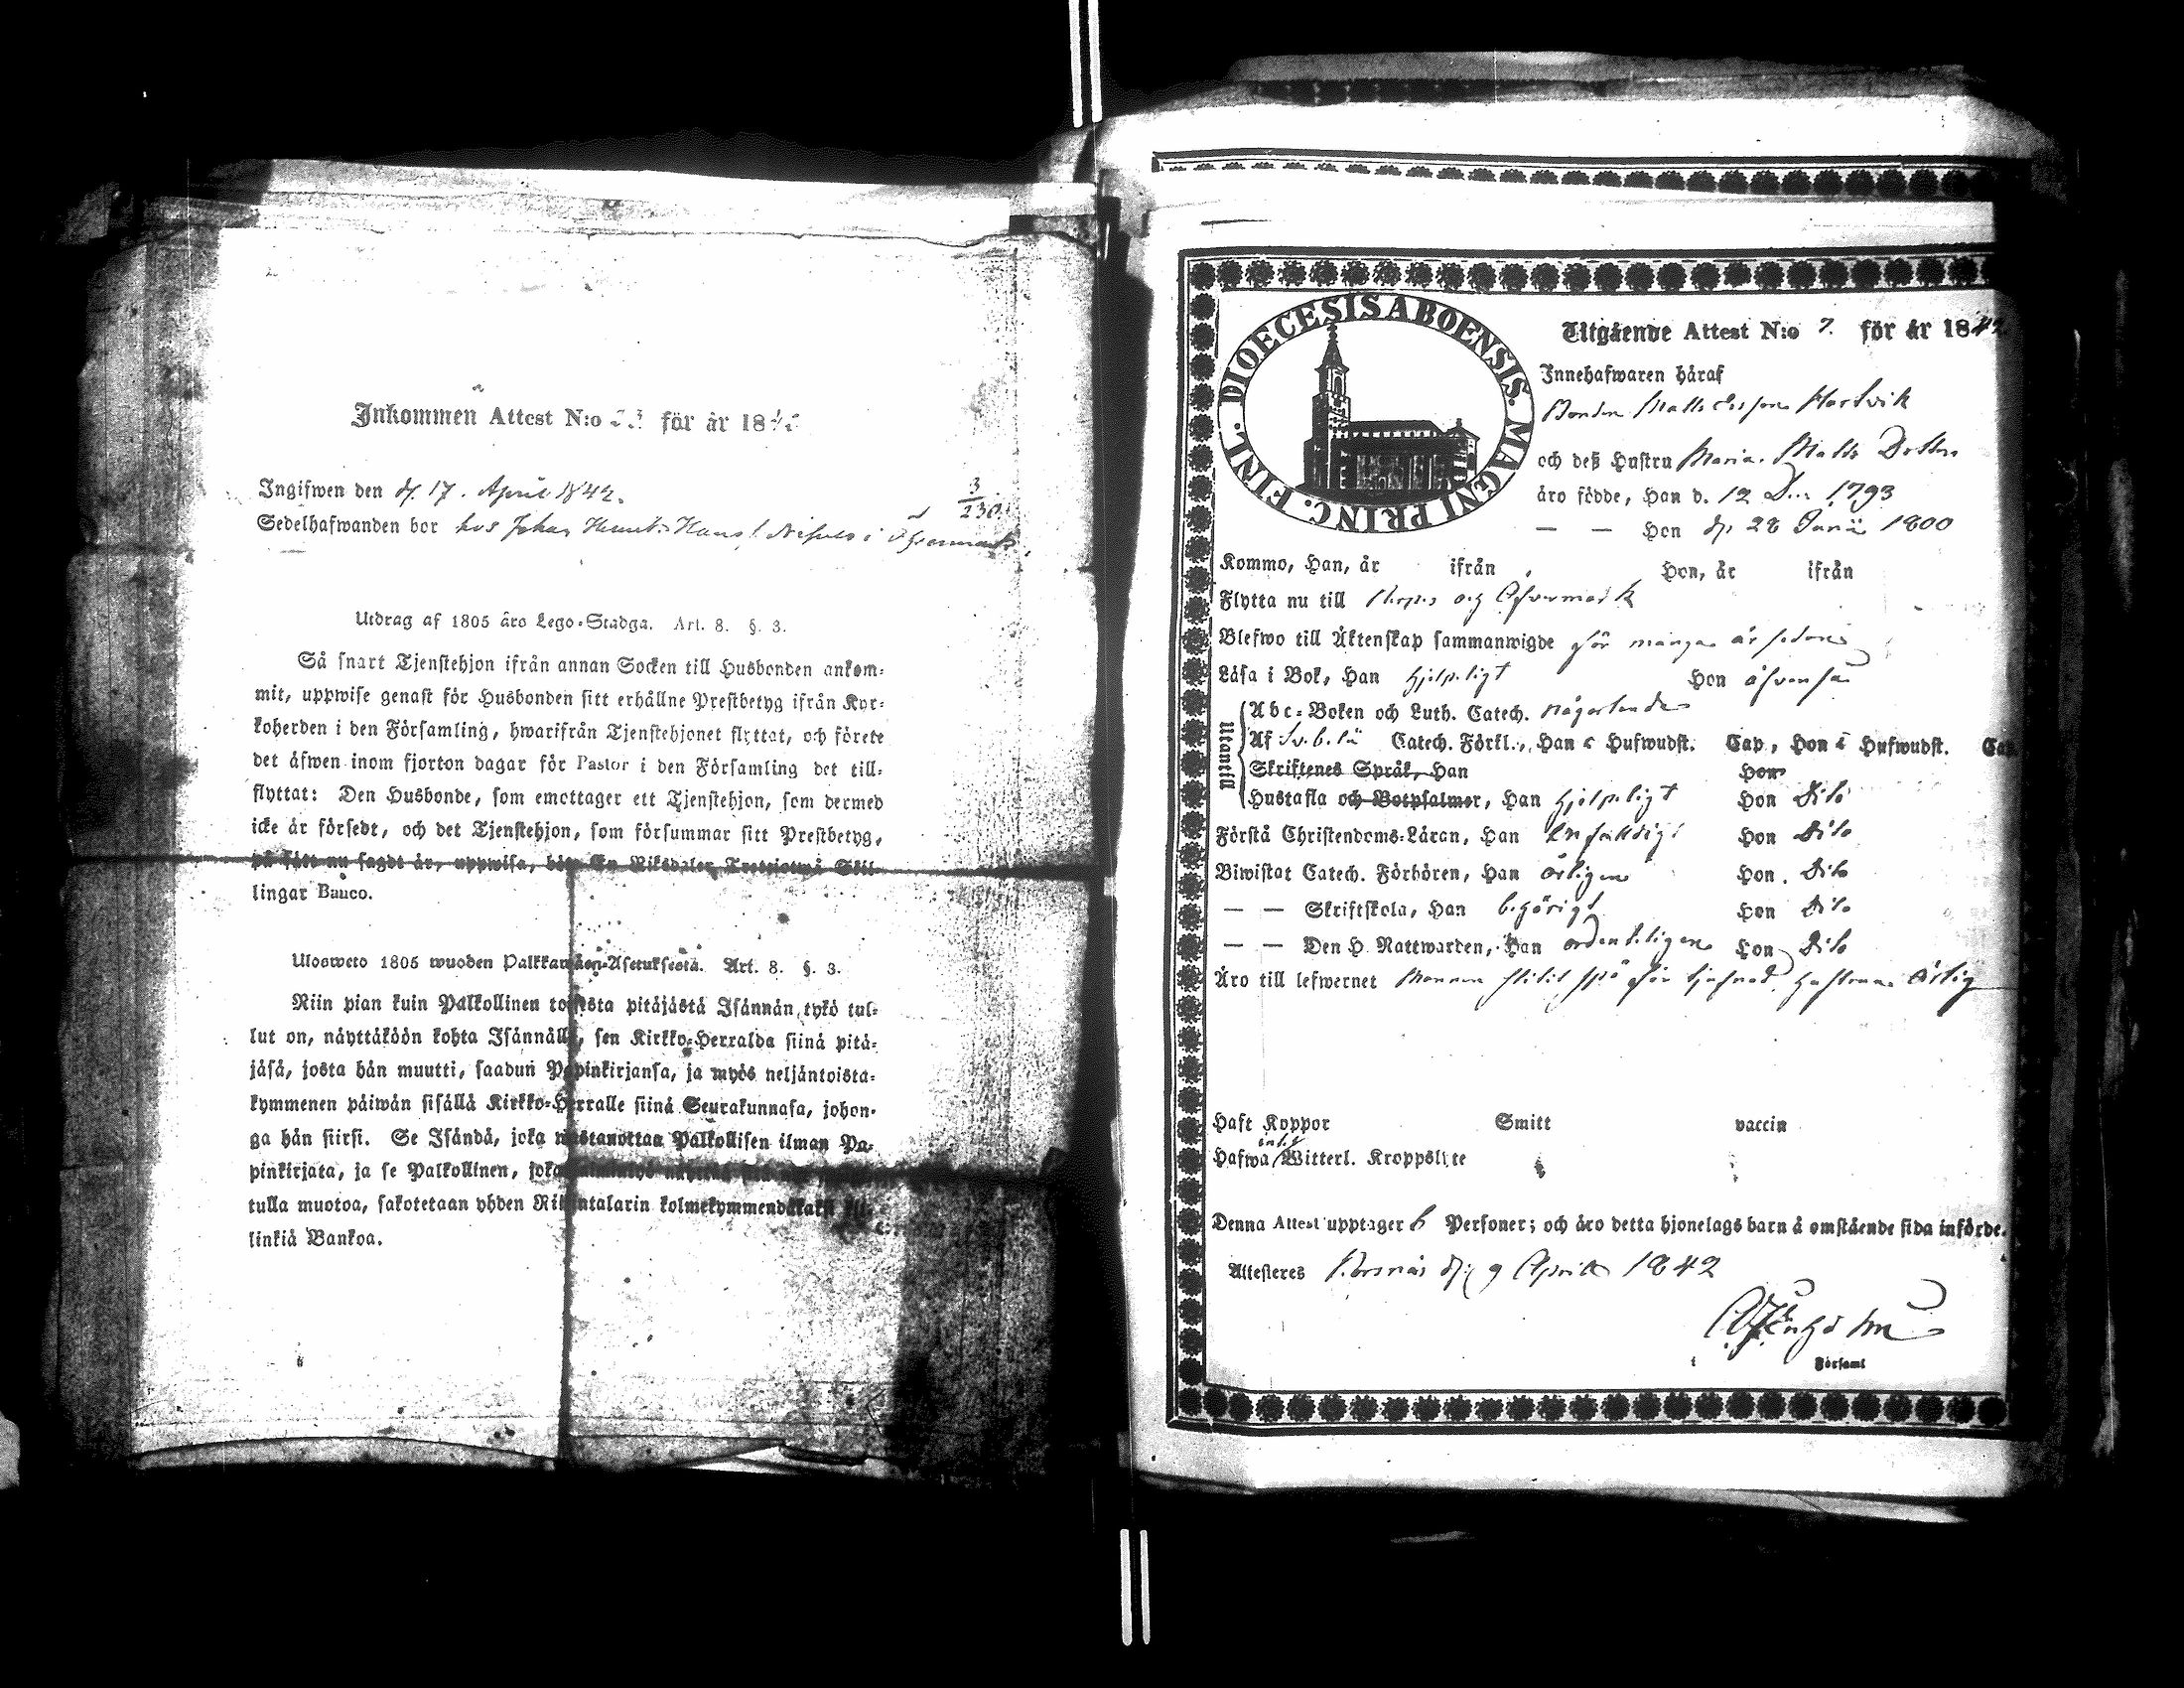 Inkommen Attest N:o 33 för år 1842
Ingifwen den d. 17. April 1842.
3
230.
Sedelhafwanden bor hos Johan Henrik Hans i Öfvermark
Utdrag af 1805 åro Lego-Stadga. Art. 8. §. 3.
Så snart Tjenstehjon ifrån annan Socken till Husbonden ankom-
mit, uppwise genast för Husbonden sitt erhållne Prestbetyg ifrån Kyr-
koherden i den Församling, hwarifrån Tjenstehjonet flyttat, och förete
det åfwen inom fjorton dagar för Pastor i den Församling det till-
flyttat: Den Husbonde, som emottager ett Tjenstehjon, som dermed
icke år försedt, och det Tjenstehjon, som försummar sitt Prestbetyg,
på sått nu sagdt år, uppwisa, böte En Riksdaler Trettiotwå Skil-
lingar Banco.
Ulosweto 1805 wuoden Palkkawäen-Asetuksesta. Art. 8. §. 3.
Niin pian kuin Palkollinen toisesta pitäjästä Isännän tykö tul-
lut on, näyttäköön kohta Isännälle, sen Kirkko-Herralda siinä pitä-
jäsä, josta hän muutti, saadun Papinkirjansa, ja myös neljäntoista-
kymmenen päiwän sisällä Kirkko-Herralle siinä Seurakunnasa, johon-
ga hän siirsi. Se Isändä, joka wastanottaa Palkollisen ilman Pa-
pinkirjata, ja se Palkollinen, joka
tulla muotoa, sakotetaan yhden Riksintalarin kolmekymmendäkaksi kil-
linkiä Bankoa.
DIOECESIS ABOENSIS. MAGNI PRINC. FINL.
Utgående Attest N:o 7. för år 1842
Innehafwaren håraf
Bonden Matts Ersson Hartvik
och deß Hustru Maria Matts Dotter
åro födde, Han d. 12 Dec 1793
— — Hon d. 28 Junii 1800
Kommo, Han, år ifrån Hon, år ifrån
Flytta nu till Nerpes og Öfvermark
Blefwo till Äktenskap sammanwigde för många år sedan
Låsa i Bok, Han hjelpeligt Hon åfvenså
Utantill
Abc-Boken och Luth. Catech. någorlunda
Af Sv. b. lii Catech. Förkl., Han c Hufwudst. Cap, Hon c Hufwudst. Cap.
Skriftenes Språk, Han Hon
Hustafla och Botpsalmer, Han hjelpeligt Hon Dito
Förstå Christendoms-Låran, Han Enfaldigt Hon Dito
Biwistat Catech. Förhören, Han årligen Hon Dito
— — Skriftskola, Han behörigt Hon Dito
— — Den H. Nattwarden, Han ordenteligen Hon Dito
Äro till lefwernet Mannen för tjufnad, hustrun ärlig
Haft Koppor Smitt vaccin
intet
Hafwa Witterl. Kroppslyte
Denna Attest upptager 6 Personer; och åro detta hjonelags barn å omstående sida införde.
Attesteres Korsnäs d. 9 April 1842
Församl